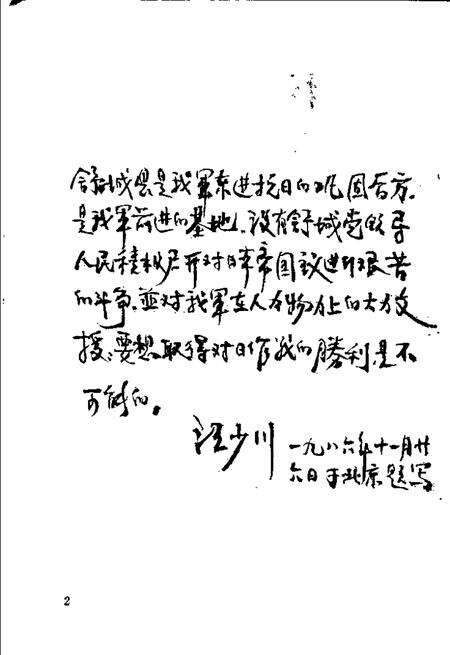 舒城县是我军东进抗日的巩固后方、
是我军前进的基地、没有舒城党领导
人民積极展开对日本帝国主义进行艰苦
的斗争、並对我軍在人力物力上的大力支
援、要想取得对日作战的勝利是不
可能的。
汪少川 一九八六年十一月廿
六日于北京题写
2